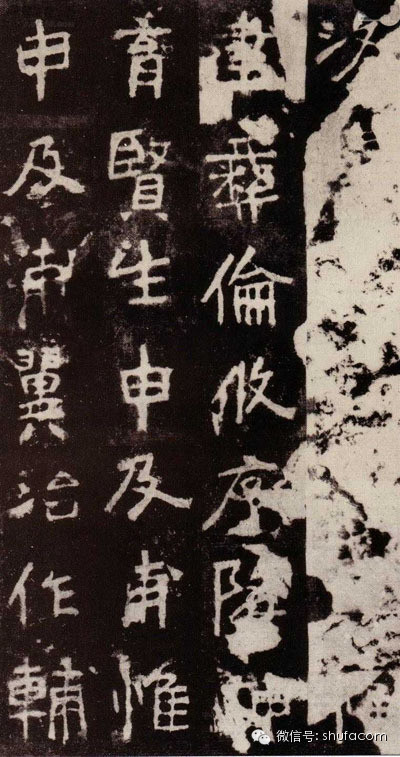 彝倫攸序降神
育賢生申及甫惟
申及甫翼治作輔
微信号: shufacom